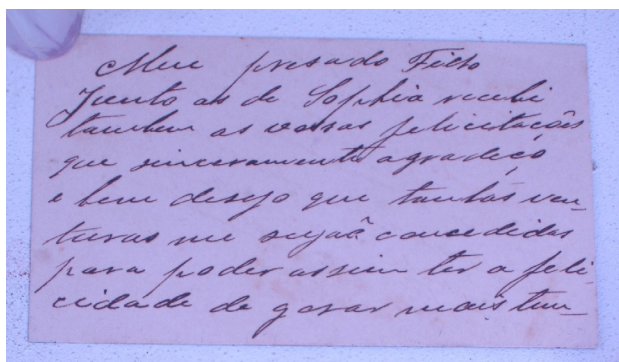 Meu presado Filho
Junto as de Sophia recebi
tambem as vossas felicitações
que sinceramente agradeço
e bem desejo que tantas ven-
turas me sejaõ concedidas
para poder assim ter a feli-
cidade de gosar mais tem-